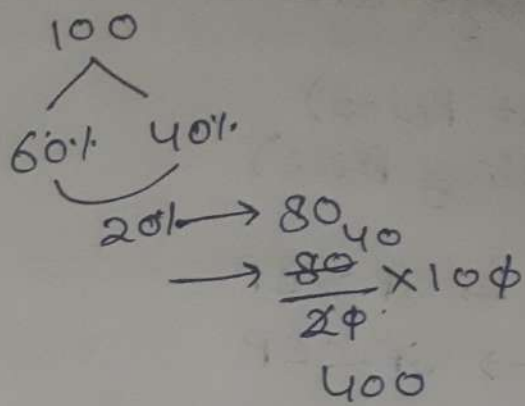 100
60% 40%
20% → 80
40
→ 80/20 × 100
400